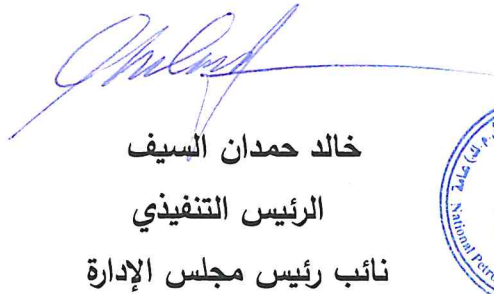 خالد حمدان السيف
الرئيس التنفيذي
نائب رئيس مجلس الإدارة
National